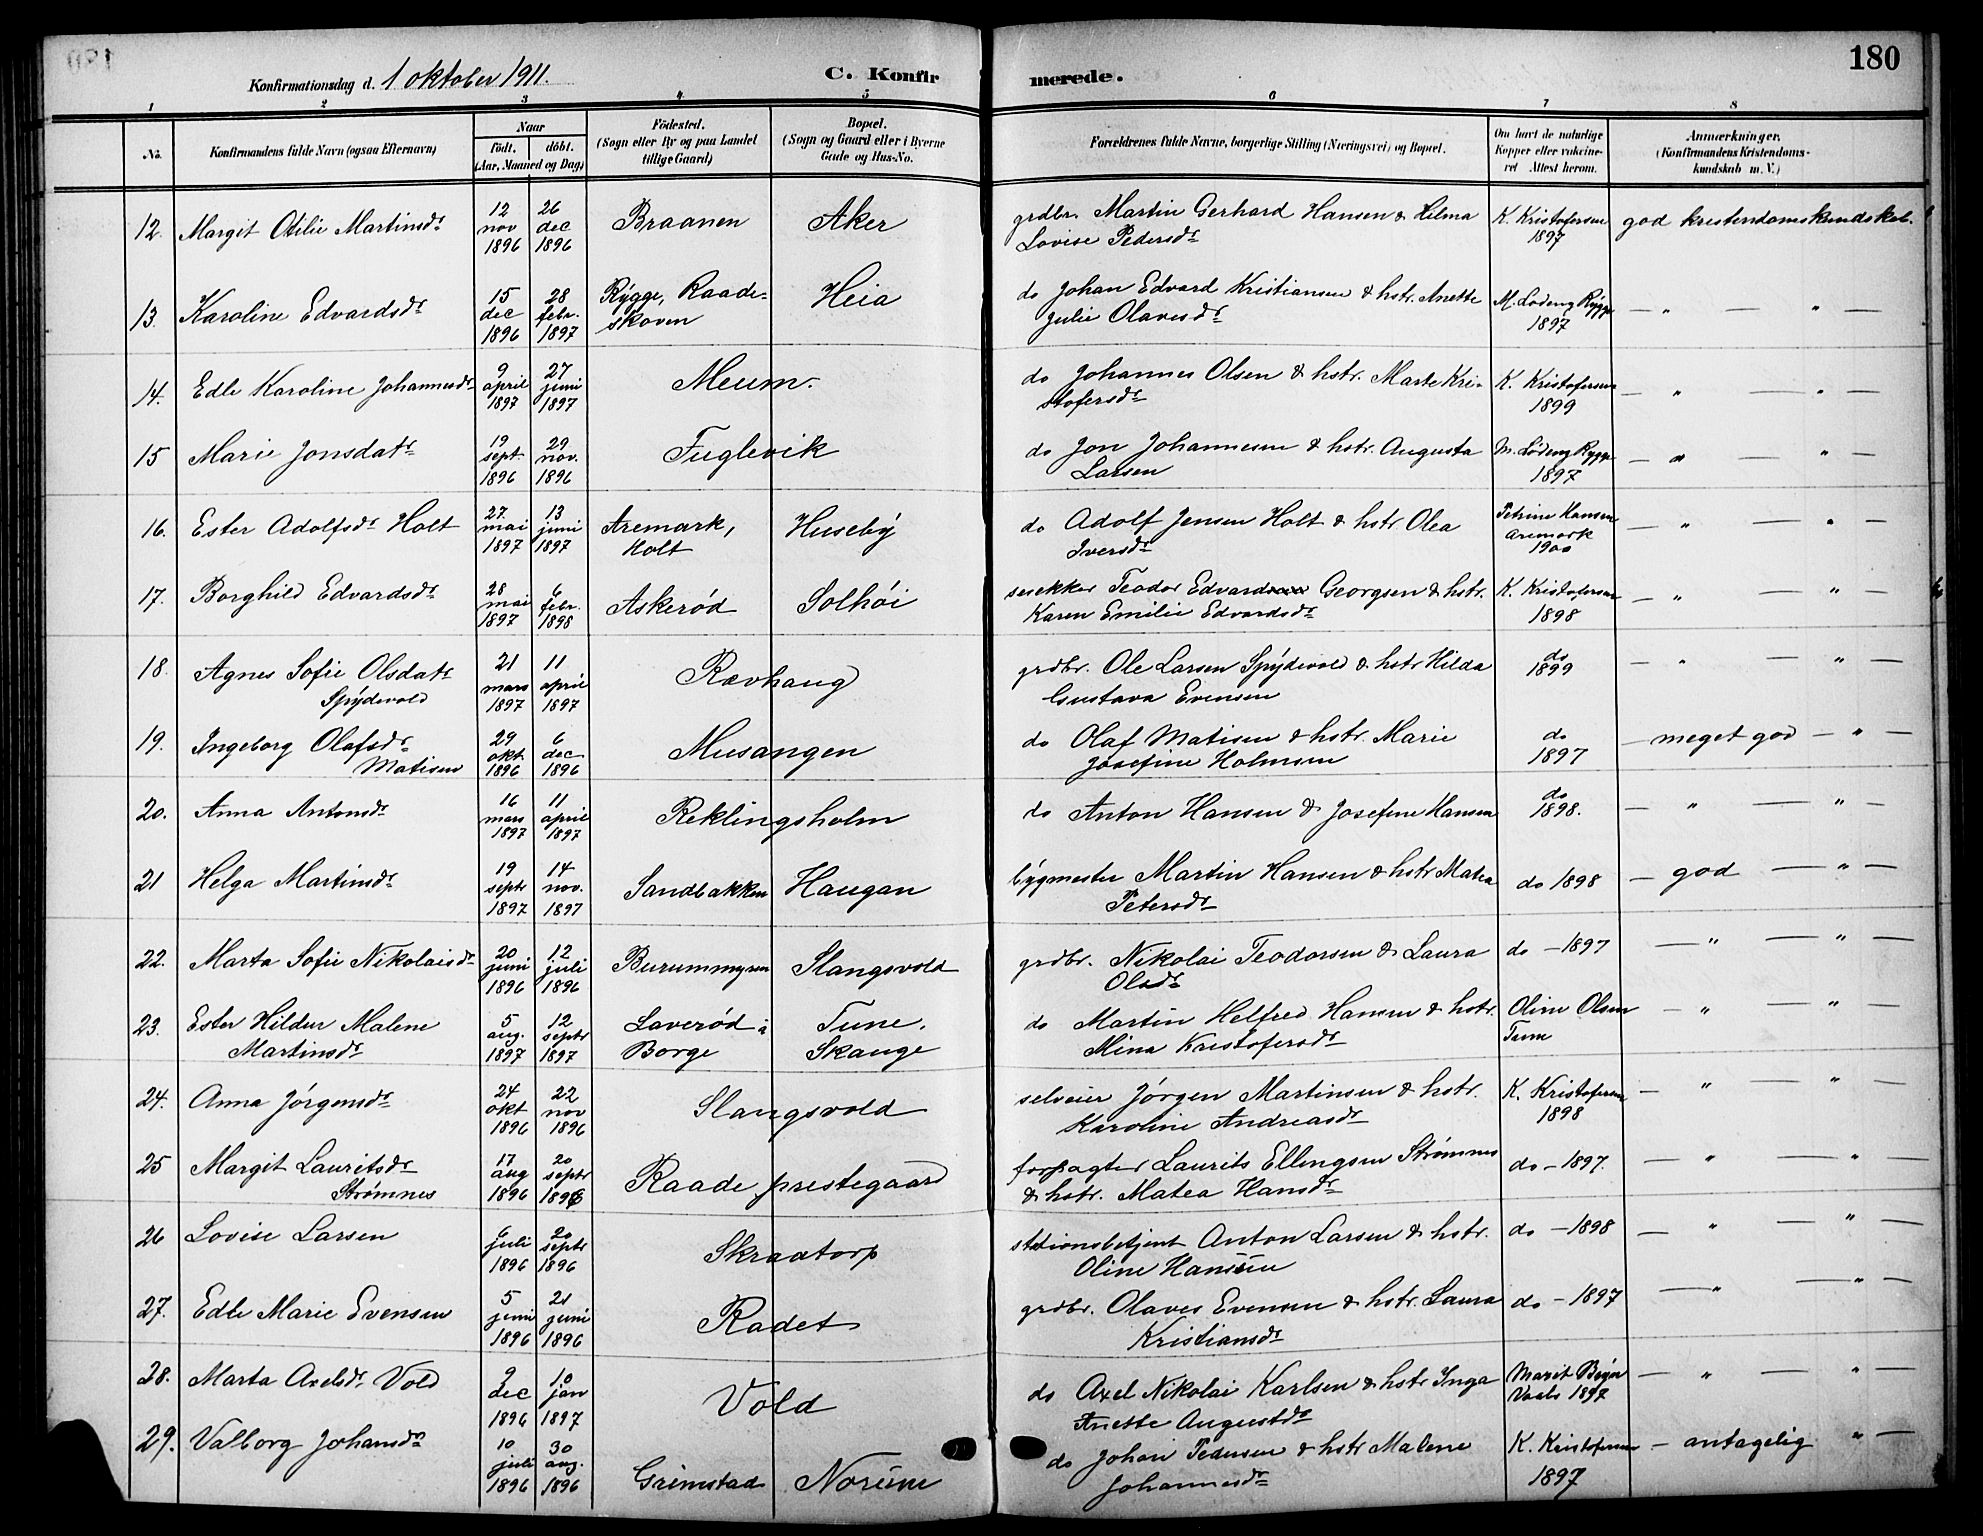 180
Konfirmationsdag d. 1 oktober 1911.
C. Konfirmerede.
1 2 3 4. 5 6 7 8
No. Konfirmandens fulde Navn (ogsaa Efternavn) Naar født. døbt. (Aar, Maaned og Dag) Fødested. (Sogn eller By og paa Landet tillige Gaard) Bopæl. (Sogn og Gaard eller i Byerne Gade og Hus-No. Forældrenes fulde Navne, borgerlige Stilling (Næringsvei) og Bopæl. Om havt de naturlige Kopper eller vakcineret Attest herom. Anmærkninger. (Konfirmandens Kristendomskundskab m. V.)
12. Margit Otilie Martinsdr 12 nov 1896 26 dec 1896 Braanen Aker grdbr. Martin Gerhard Hansen & Hilma Lovise Pedersdr K. Kristofersen 1897 god kristendomskundskab.
13. Karoline Edvardsdr 15 dec 1896 28 febr. 1897 Rygge, Raadeskoven Heia do Johan Edvard Kristiansen & hstr. Anette Julie Olavesdr M. Lødeng Rygge 1897 — " — " —
14. Edle Karoline Johannesdr 9 april 1897 27 juni 1897 Meum. do Johannes Olsen & hstr. Marte Kristofersdr K. Kristofersen 1899 — " — " —
15 Marie Jonsdatr 19 sept. 1896 29 nov. 1896 Fuglevik do Jon Johannesen & hstr. Augusta Larsen M. Lødeng Rygge 1897 — " — " —
16. Ester Adolfsdr Holt 27. mai 1897 13 juni 1897 Aremark, Holt Huseby do Adolf Jensen Holt & hstr. Olea Iversdr Petrine Hansen Aremark 1900 — " — " —
17. Borghild Edvardsdr 28 mai 1897 6 febr. 1898 Askerød Solhøi Teodor Edvard Georgsen & hstr. Karen Emilie Edvardsdr K. Kristofersen 1898 — " — " —
18. Agnes Sofie Olsdatr Spydevold 21 mars 1897 11 april 1897 Rævhaug grdbr. Ole Larsen Spydevold & hstr Hilda Gustava Evensen do 1899 — " — " —
19. Ingeborg Olafsdr Matisen 29 okt 1896 6 dec 1896 Musangen do Olaf Matisen & hstr. Marie Josefine Holmsen do 1897 — meget god — " —
20. Anna Antonsdr 16 mars 1897 11 april 1897 Reklingsholm do Anton Hansen & Josefine Hansen do 1898. — " — " —
21 Helga Martinsdr 19 septr 1897 14 nov. 1897 Sandbakken Haugan bygmester Martin Hansen & hstr Matea Petersdr do 1898 — god — " —
22. Marta Sofie Nikolaisdr 20 juni 1896 12 juli 1896 Burummyren Slangsvold grdbr. Nikolai Teodorsen & Laura Olsdr do — 1897 — " — " —
23. Ester Hildur Malene Martinsdr 5 aug. 1897 12 septr 1897 Laverød i Borge Tune, Skauge do Martin Helfred Hansen & hstr. Mina Kristofersdr Oline Olsen Tune — " — " —
24. Anna Jörgensdr 24 okt 1896 22 nov 1896 Slangsvold selveier Jörgen Martinsen & hstr. Karoline Andreasdr K. Kristofersen 1898 — " — " —
25 Margit Lauritsdr Strømnes 17 aug 1896 20 septr 1896 Raade prestegaard forpagter Laurits Ellingsen Strømnes & hstr. Matea Hansdr do — 1897. — " — " —
26 Lovise Larsen 6 juli 1896 20 septr 1896 Skraatorp stationsbetjent Anton Larsen & hstr. Oline Hansen do — 1898 — " — " —
27. Edle Marie Evensen 5 juni 1896 21 juni 1896 Radet grdbr. Olaves Evensen & hstr. Laura Kristiansdr do — 1897 — " — " —
28. Marta Axelsdr Vold 9 dec 1896 10 jan 1897 Vold do Axel Nikolai Karlsen & hstr Inga Anette Augustdr Marit 1897 — " — " —
29. Valborg Johansdr 10 juli 1896 30 aug. 1896 Grimstad Norum do Johan Pedersen & hstr Malene Johannesdr K. Kristofersen 1897 — antagelig " —